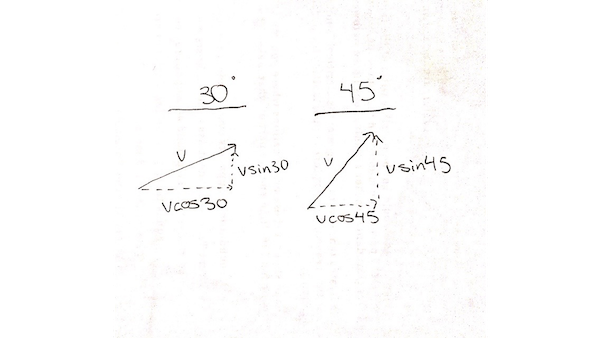 30°
v
vsin30
vcos30
45°
v
vsin45
vcos45